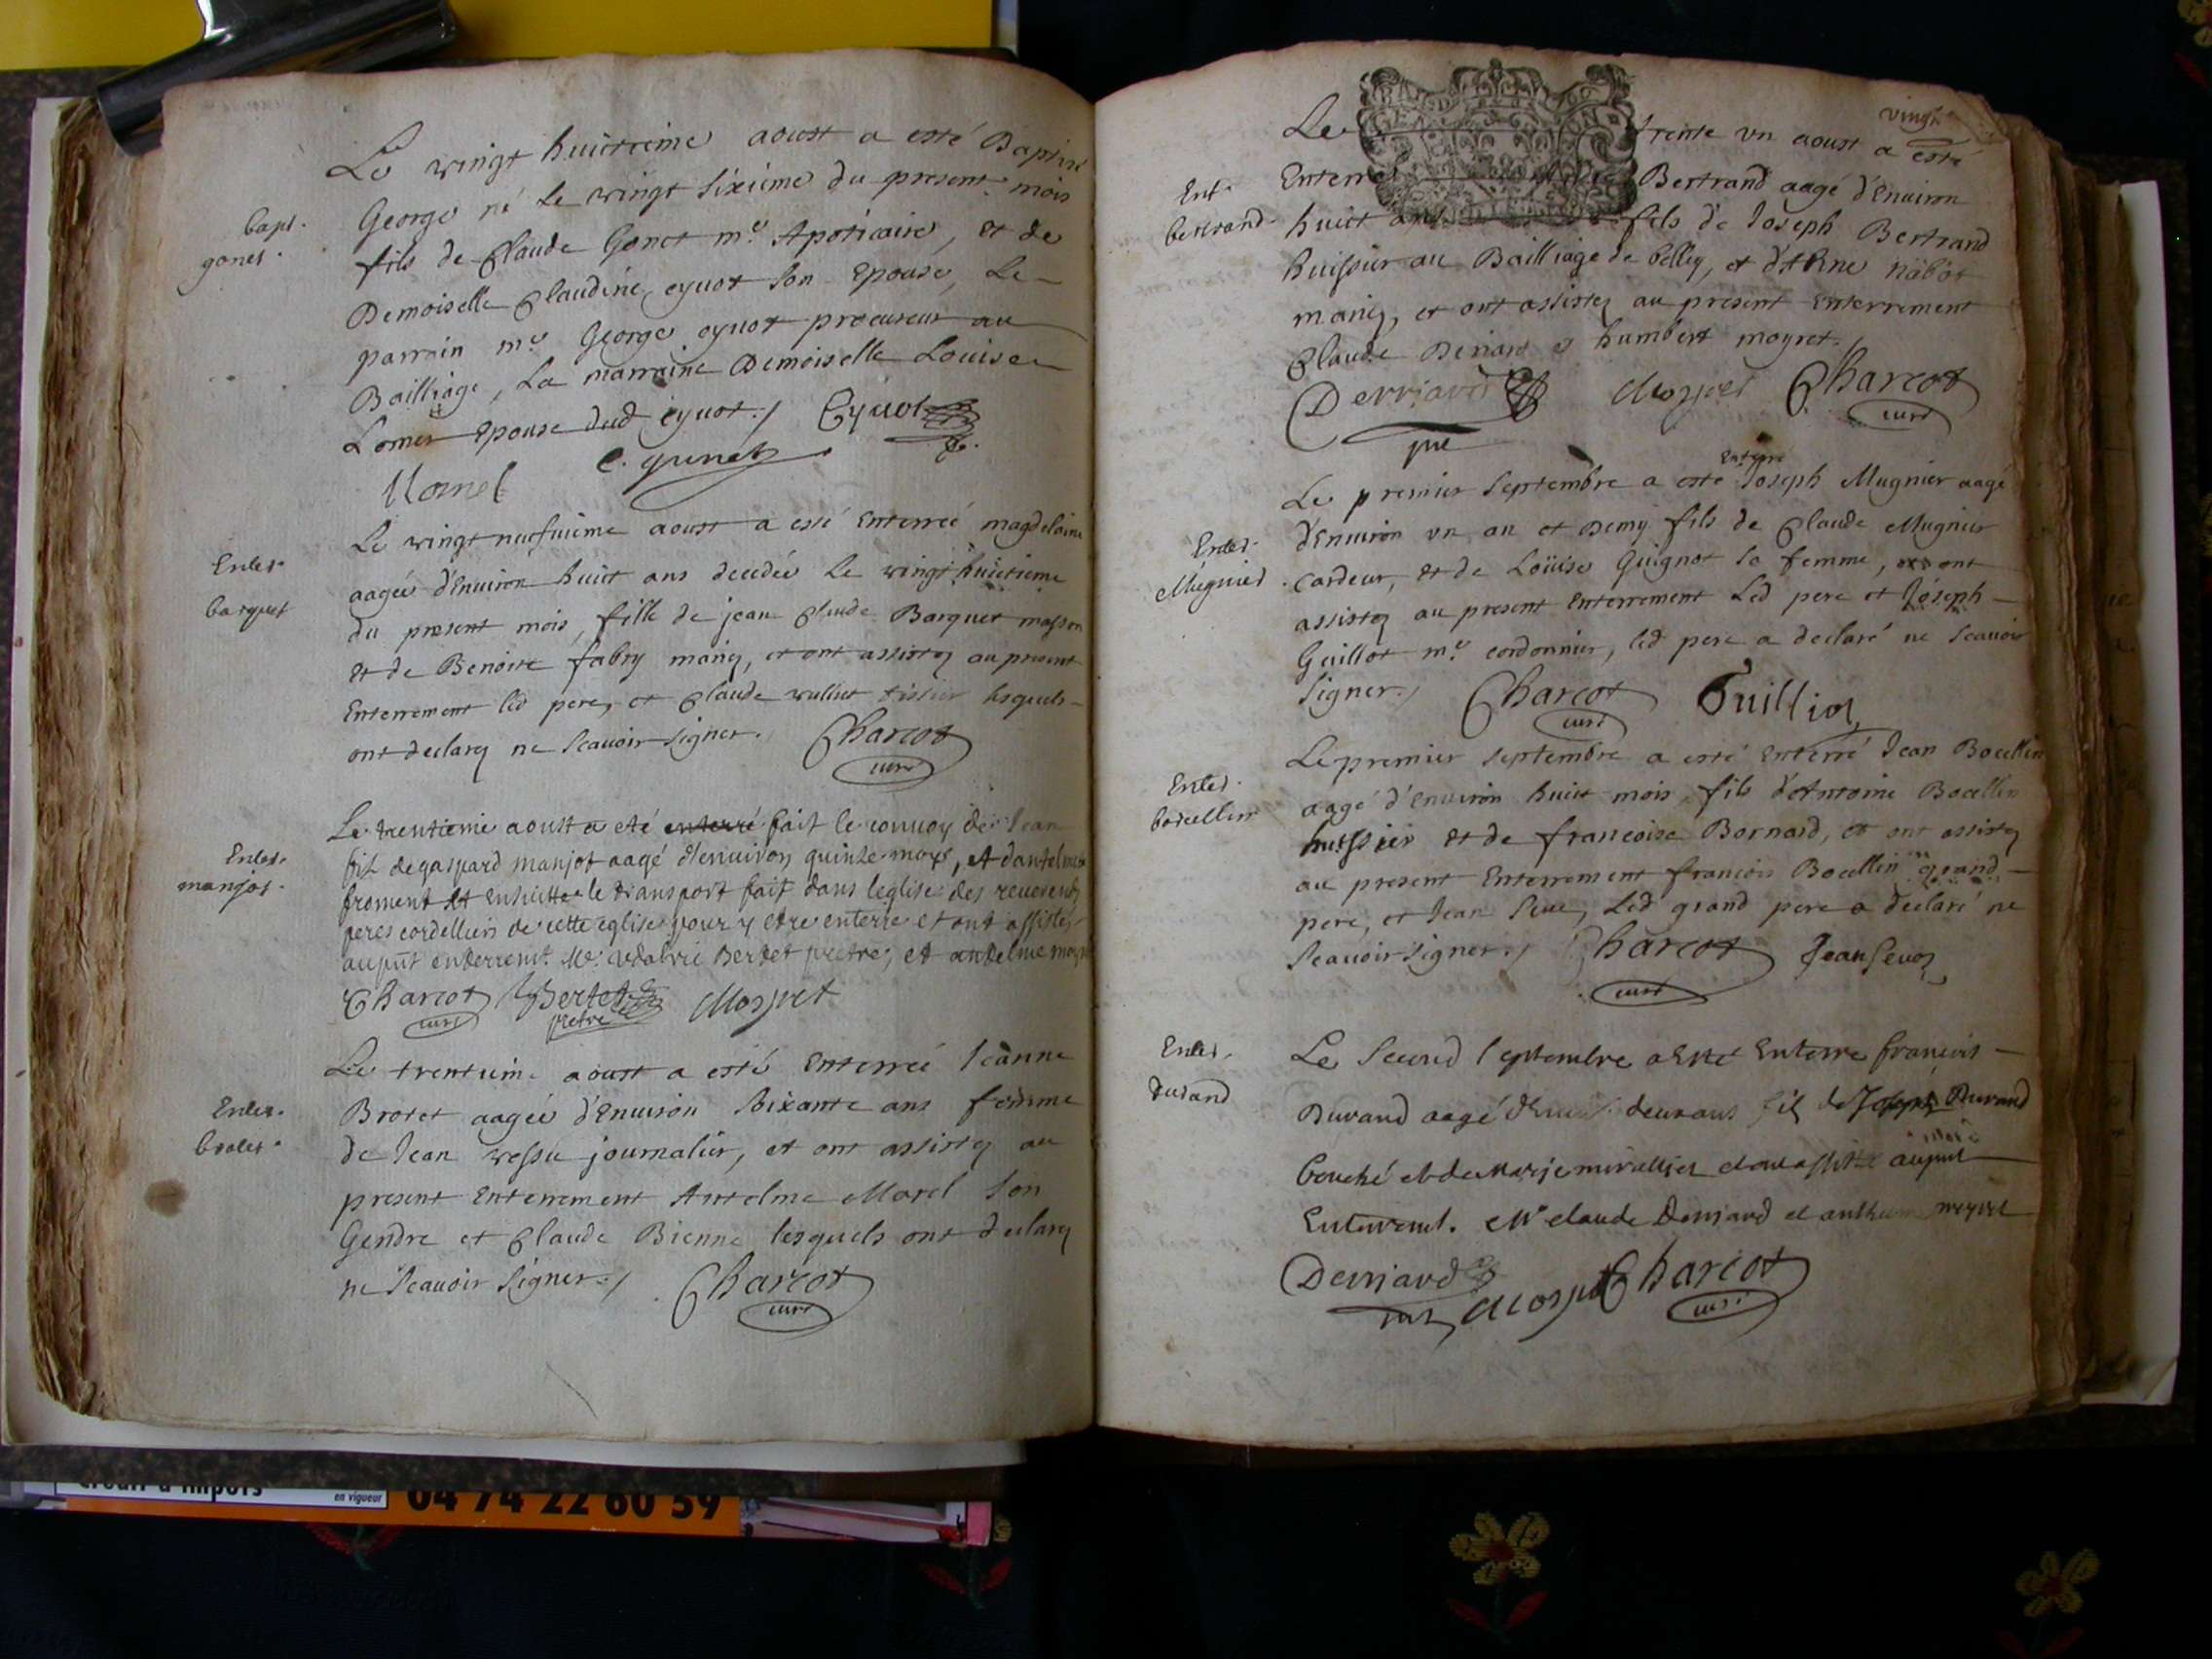 Le vingt huictieme aoust a esté Baptisé
bapt.
gonet.
George né le vingt sixieme du present mois
fils de Claude Gonet m.e Apoticaire, et de
Demoiselle Claudine eyuot son Epouse, Le
parrain m.e George eyuot procureur au
Bailliage, La marraine Demoiselle Louise
Lomer Epouse dud eyuot./ Eyuot
c. gunet
Enter.
barquet
Le vingt neufuieme aoust a esté Enterreé magdelaine
aageé d'Enuiron huict ans decedeé le vingt huictieme
du present mois, fille de jean Claude Barquet masson
et de Benoite fabry mariez, et ont assistez au present
Enterrement led pere, et Claude vullier tissier lesquels
ont declarez ne scauoir signer. Charcot
curé
Enter.
manjot.
Le trentieme aoust a eté enterré fait le conuoy de Jean
fils de gaspard manjot aagé d'enuiron quinze moys, et dantelme
froment et ensuitte le transport fait dans leglise des reuerends
peres cordelliers de cette eglise pour y etre enterré et ont assistés
au pnt enterremt. Mr. Bertet pretre, et antelme
Charcot Bertet Moyret
curé pretre
Enter.
brotet.
Le trentieme aoust a esté Enterreé Jeanne
Brotet aageé d'Enuiron soixante ans femme
de Jean vessu journalier, et ont assistez au
present Enterrement Antelme Morel son
Gendre et Claude Bienne lesquels ont declarez
ne scauoir signer./ Charcot
curé
vingt
Le trente un aoust a esté
Ent.
bertrand.
Enterré Bertrand aagé d'Enuiron
huict ans fils de Joseph Bertrand
huissier au Bailliage de belley, et d'Anne
mariez, et ont assistez au present Enterrement
Claude Deriard et humbert moyret.
Derriard Moyret Charcot
pre curé
Enterré
Le premier septembre a esté Joseph Mugnier aagé
Enter.
Mugnier.
d'Enuiron un an et demy fils de Claude Mugnier
cardeur, et de Loüise Guignot sa femme, et ont
assistez au present Enterrement led pere et Joseph
Guillot m.e cordonnier, led pere a declaré ne scauoir
signer./ Charcot
curé
Le premier septembre a esté Enterré Jean Bocellin
Enter.
borcellin
aagé d'Enuiron huict mois, fils d'Antoine Bocellin
huissier et de francoise Bornard, et ont assistez
au present Enterrement francois Bocellin grand
pere, et Jean seue, Led grand pere a declaré ne
scauoir signer./ Charcot
curé
Enter.
durand
Le second septembre a esté Enterré francois
Durand aagé deux ans fils de Joseph Durand
bouché et de Marie et ont assisté au pnt
Enterremt. Mr claude Derriard et anthelme moyret
Derriard Moyret Charcot
curé
crédit d'impôts
en vigueur
04 74 22 60 59